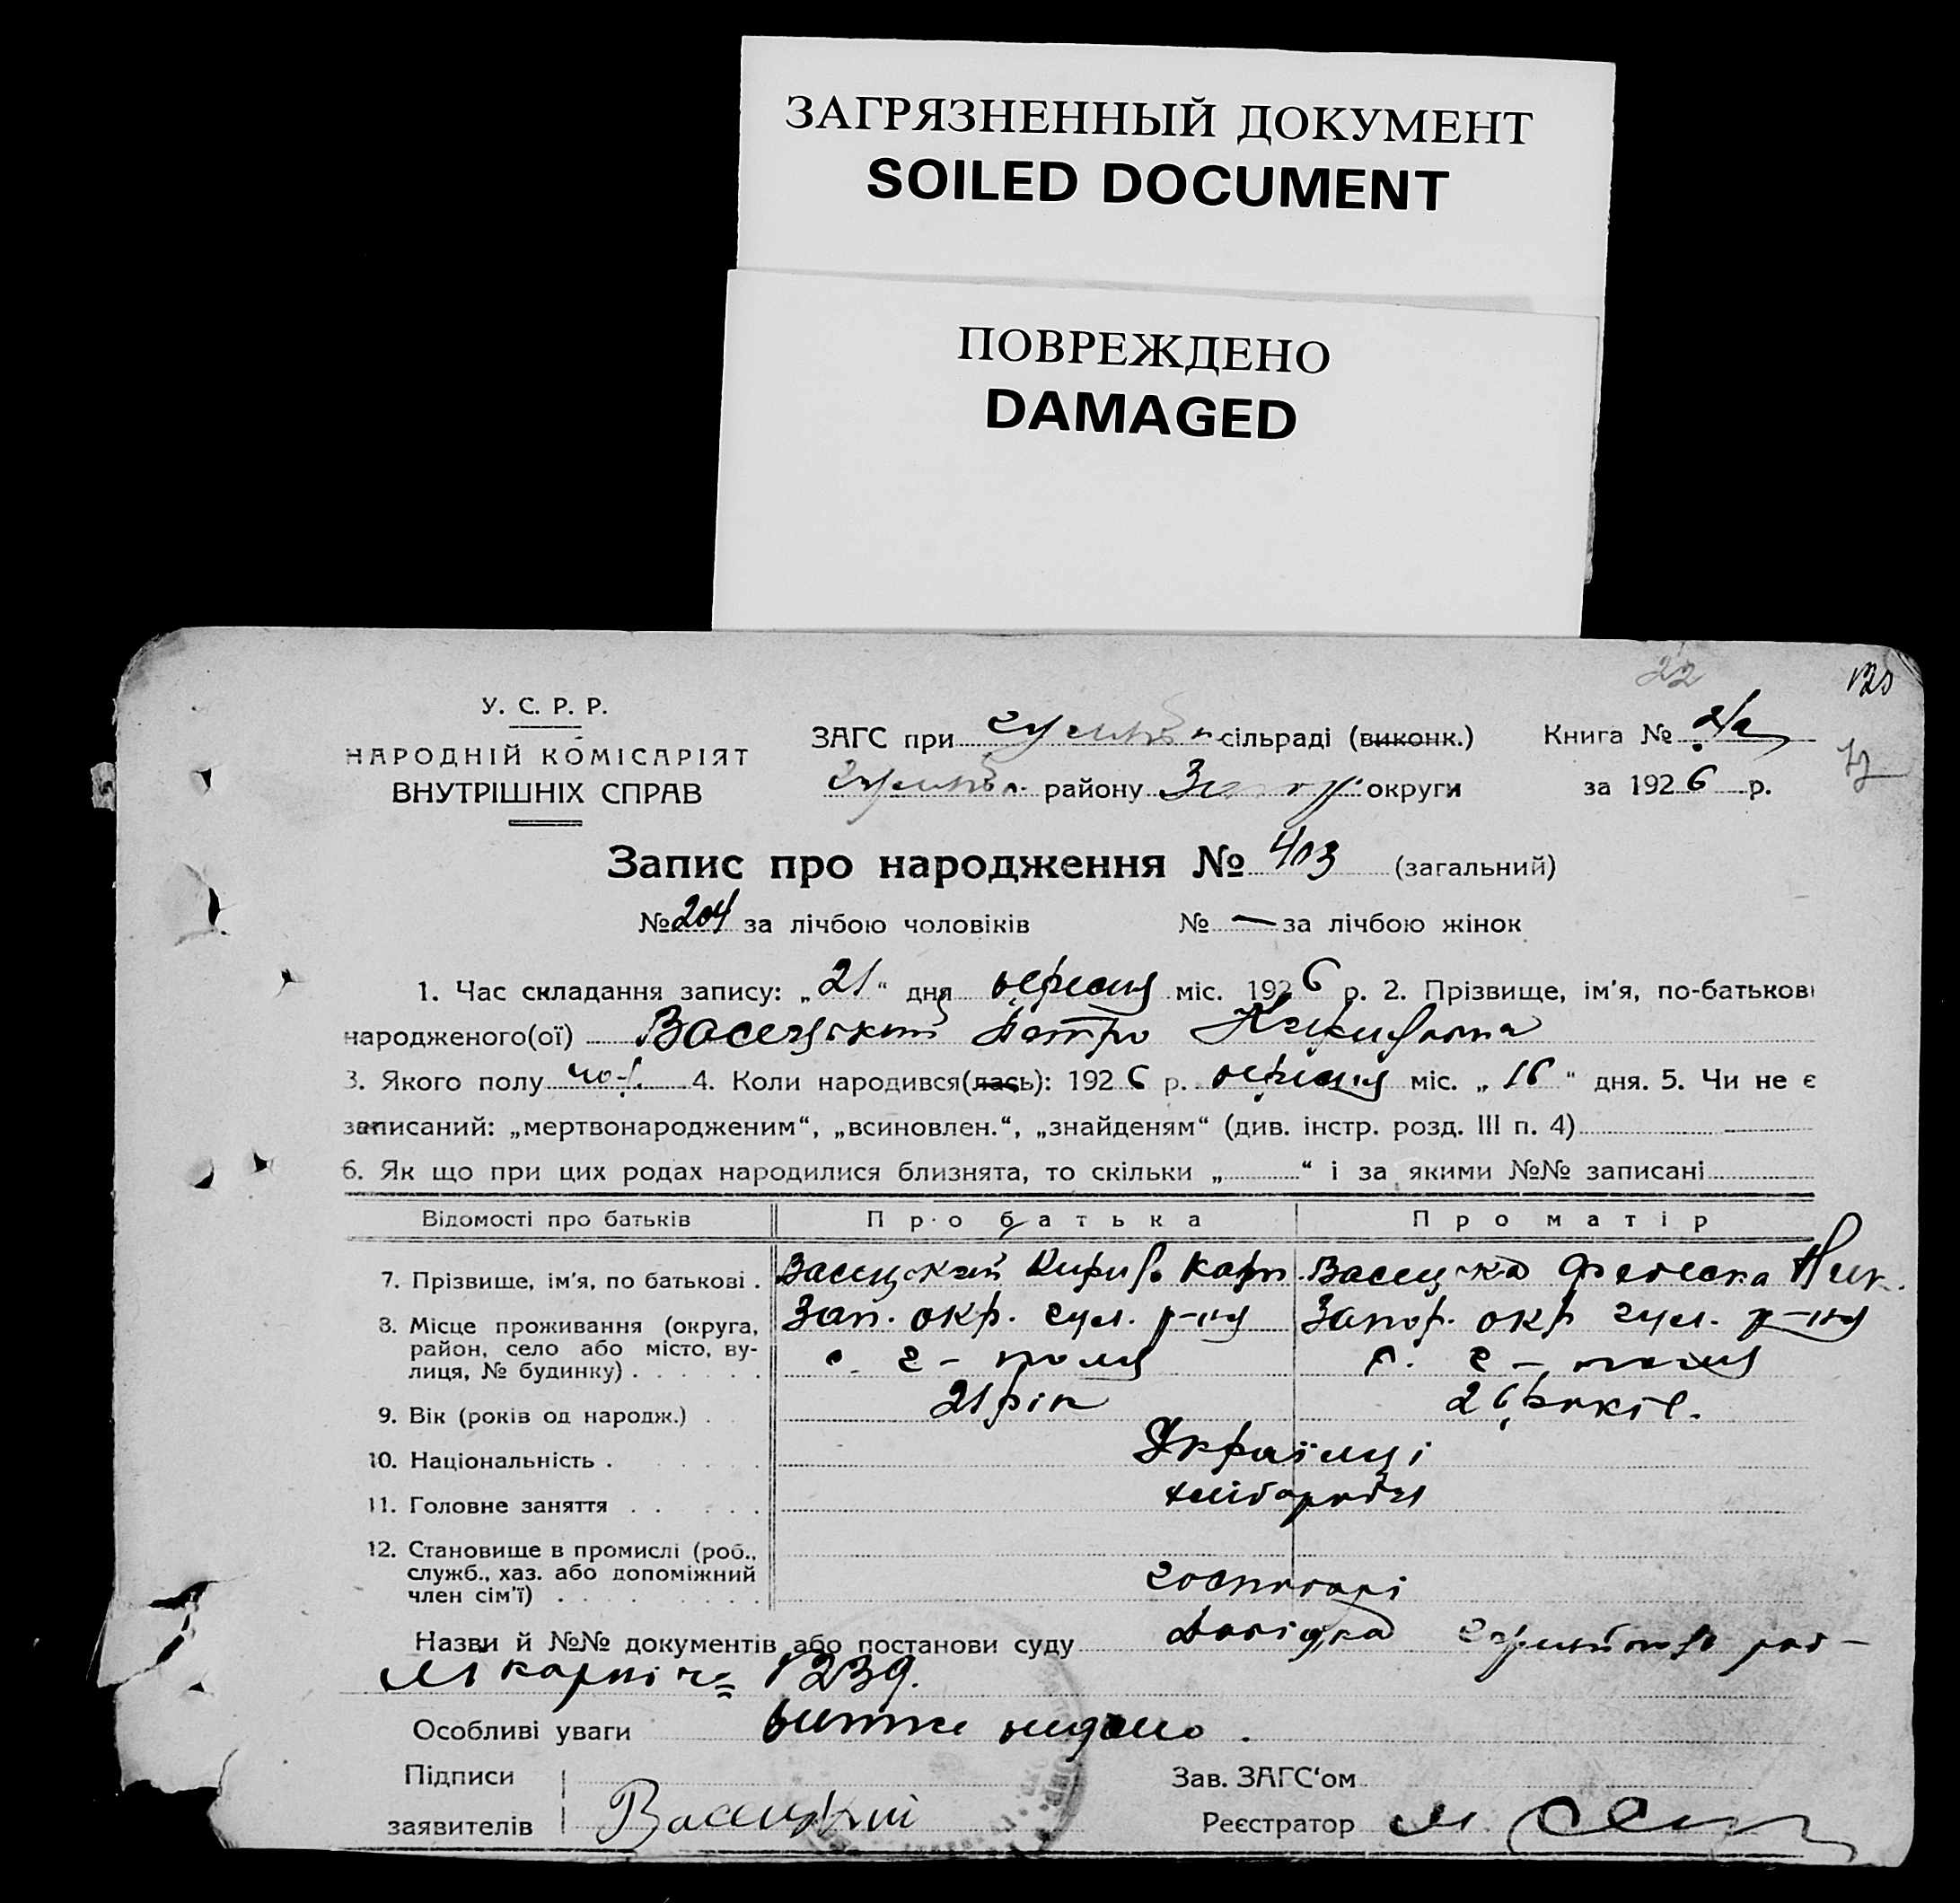 ЗАГРЯЗНЕННЫЙ ДОКУМЕНТ
SOILED DOCUMENT
ПОВРЕЖДЕНО
DAMAGED
22 120
У. С. Р. Р.
НАРОДНІЙ КОМІСАРІЯТ
ВНУТРІШНІХ СПРАВ
ЗАГС при сільраді (виконк.) Книга №
району округи за 1926 р.
Запис про народження № 403 (загальний)
№ 204 за лічбою чоловіків № — за лічбою жінок
1. Час складання запису: „21“ дня вересня міс. 1926 р. 2. Прізвище, ім'я, по-батькові
народженого(ої) Васецький Петро
3. Якого полу чол. 4. Коли народився(лась): 1926 р. вересня міс. „16“ дня. 5. Чи не є
записаний: „мертвонародженим“, „всиновлен.“, „знайденям“ (див. інстр. розд. III п. 4)
6. Як що при цих родах народилися близнята, то скільки „ “ і за якими №№ записані
Відомості про батьків Про батька Про матір
7. Прізвище, ім'я, по батькові . Васецький Кирило Карп. Васецька Феодоска Ник.
8. Місце проживання (округа, район, село або місто, вулиця, № будинку) Зап. окр. гул. р-ну Запор. окр гул. р-ну
с. г – поля с. г – поля
9. Вік (років од народж.) . 21 рік 26 років.
10. Національність . Українці
11. Головне заняття . . хліборобство
12. Становище в промислі (роб., служб., хаз. або допоміжний член сім'ї) господарі
Назви й №№ документів або постанови суду Довідка
1239.
Особливі уваги витяг видано.
Підписи Зав. ЗАГС'ом
заявителів Васецкий Реєстратор